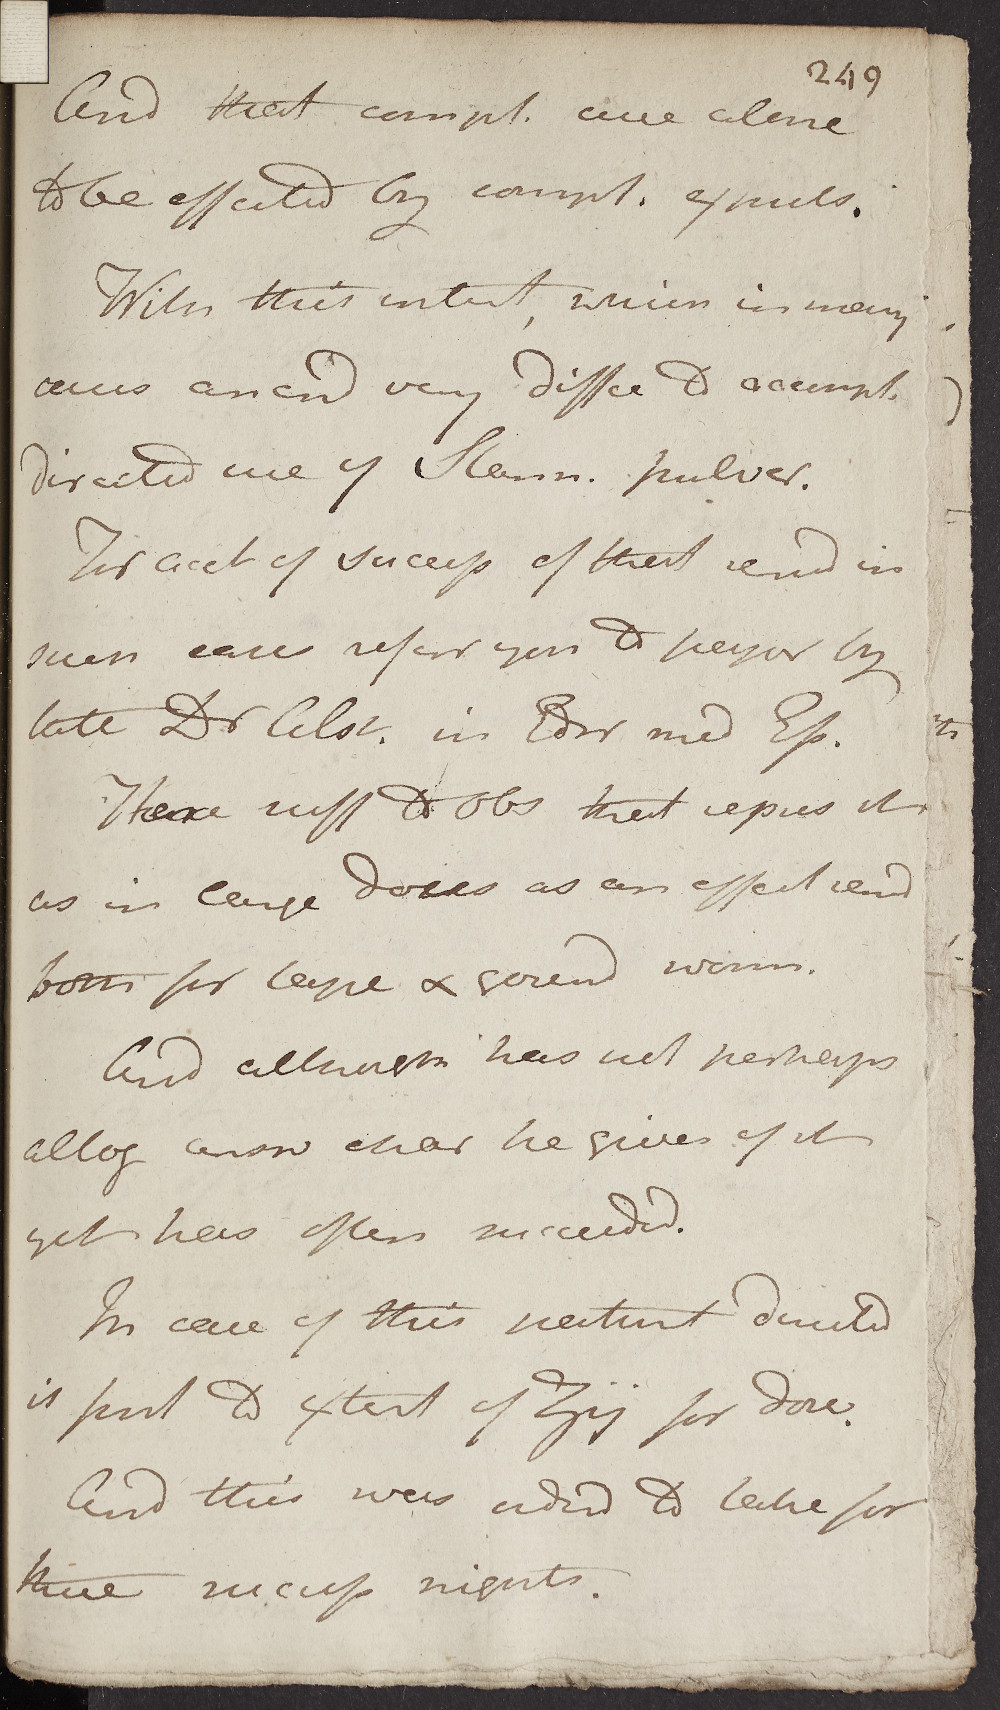 249
And that compt. cure alone
to be effected by compt. expuls.
With this intent, which in many
cases an end very diffic to accompt.
directed use of Stann. pulver.
For acct of success of that remd in
such cases refer you to paper by
late Dr Alst. in Edinr med Ess.
Here suff to obs that repres it
as in large doses as an effect remd
both for tape & round worm.
And although has not perhaps
altog answ char he gives of it
yet has often succeeded.
In case of this patient directed
it put to extent of ʒij for dose.
And this was ordrd to take for
three success nights.